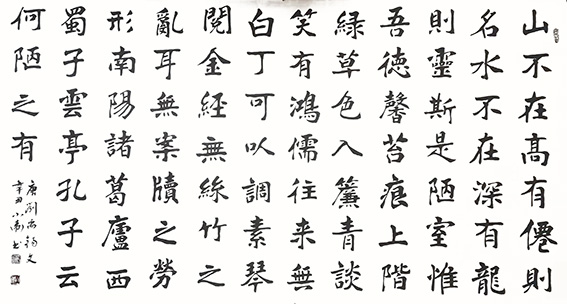 山不在髙有僊則
名水不在深有龍
則靈斯是陋室惟
吾德馨苔痕上階
緑草色入簾青談
笑有鴻儒往来無
白丁可以調素琴
閱金經無絲竹之
亂耳無案牘之勞
形南陽諸葛廬西
蜀子雲亭孔子云
何陋之有
唐劉禹錫文
辛丑小南书